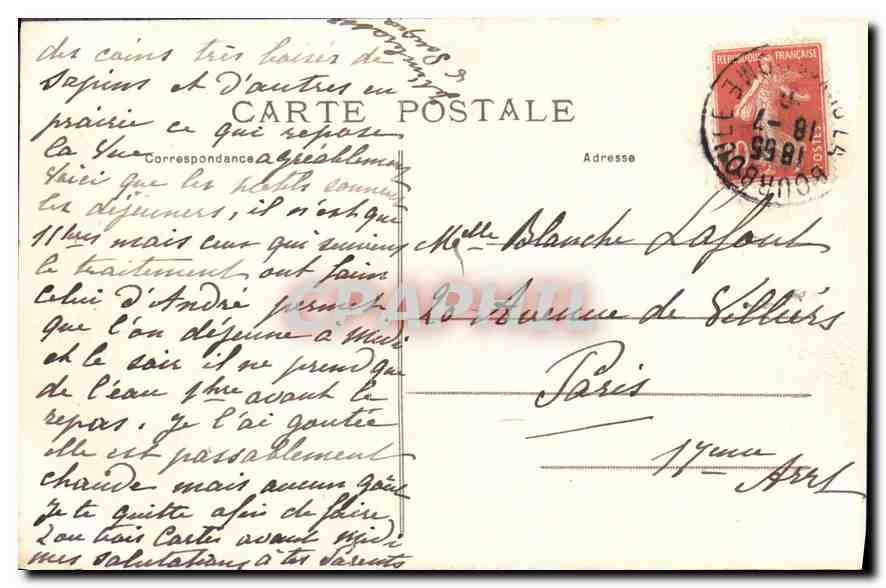 des coins très boisés de
sapins et d'autres en
prairie ce qui repose
la vue agréablement
Voici que les sonnent
les déjeuners, il n'est que
11hres mais ceux qui suivent
le traitement ont faim
celui d'André permet
que l'on déjeune à midi
et le soir il ne prend que
de l'eau 1hre avant le
repas. Je l'ai goutée
elle est passablement
chaude mais aucun goût
Je te quitte afin de faire
2 ou trois cartes avant midi
mes salutations à tes parents
CARTE POSTALE
Correspondance
Adresse
REPUBLIQUE FRANÇAISE
POSTES
LA BOURBOULE
18 55
18 -7
PUY-DE-DOME
Melle Blanche Lafont
20 Avenue de Villiers
Paris
17eme
Arrt
CPAPHIL